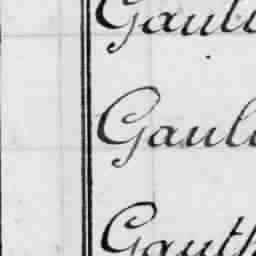 Gaul
Gaul
Gauth